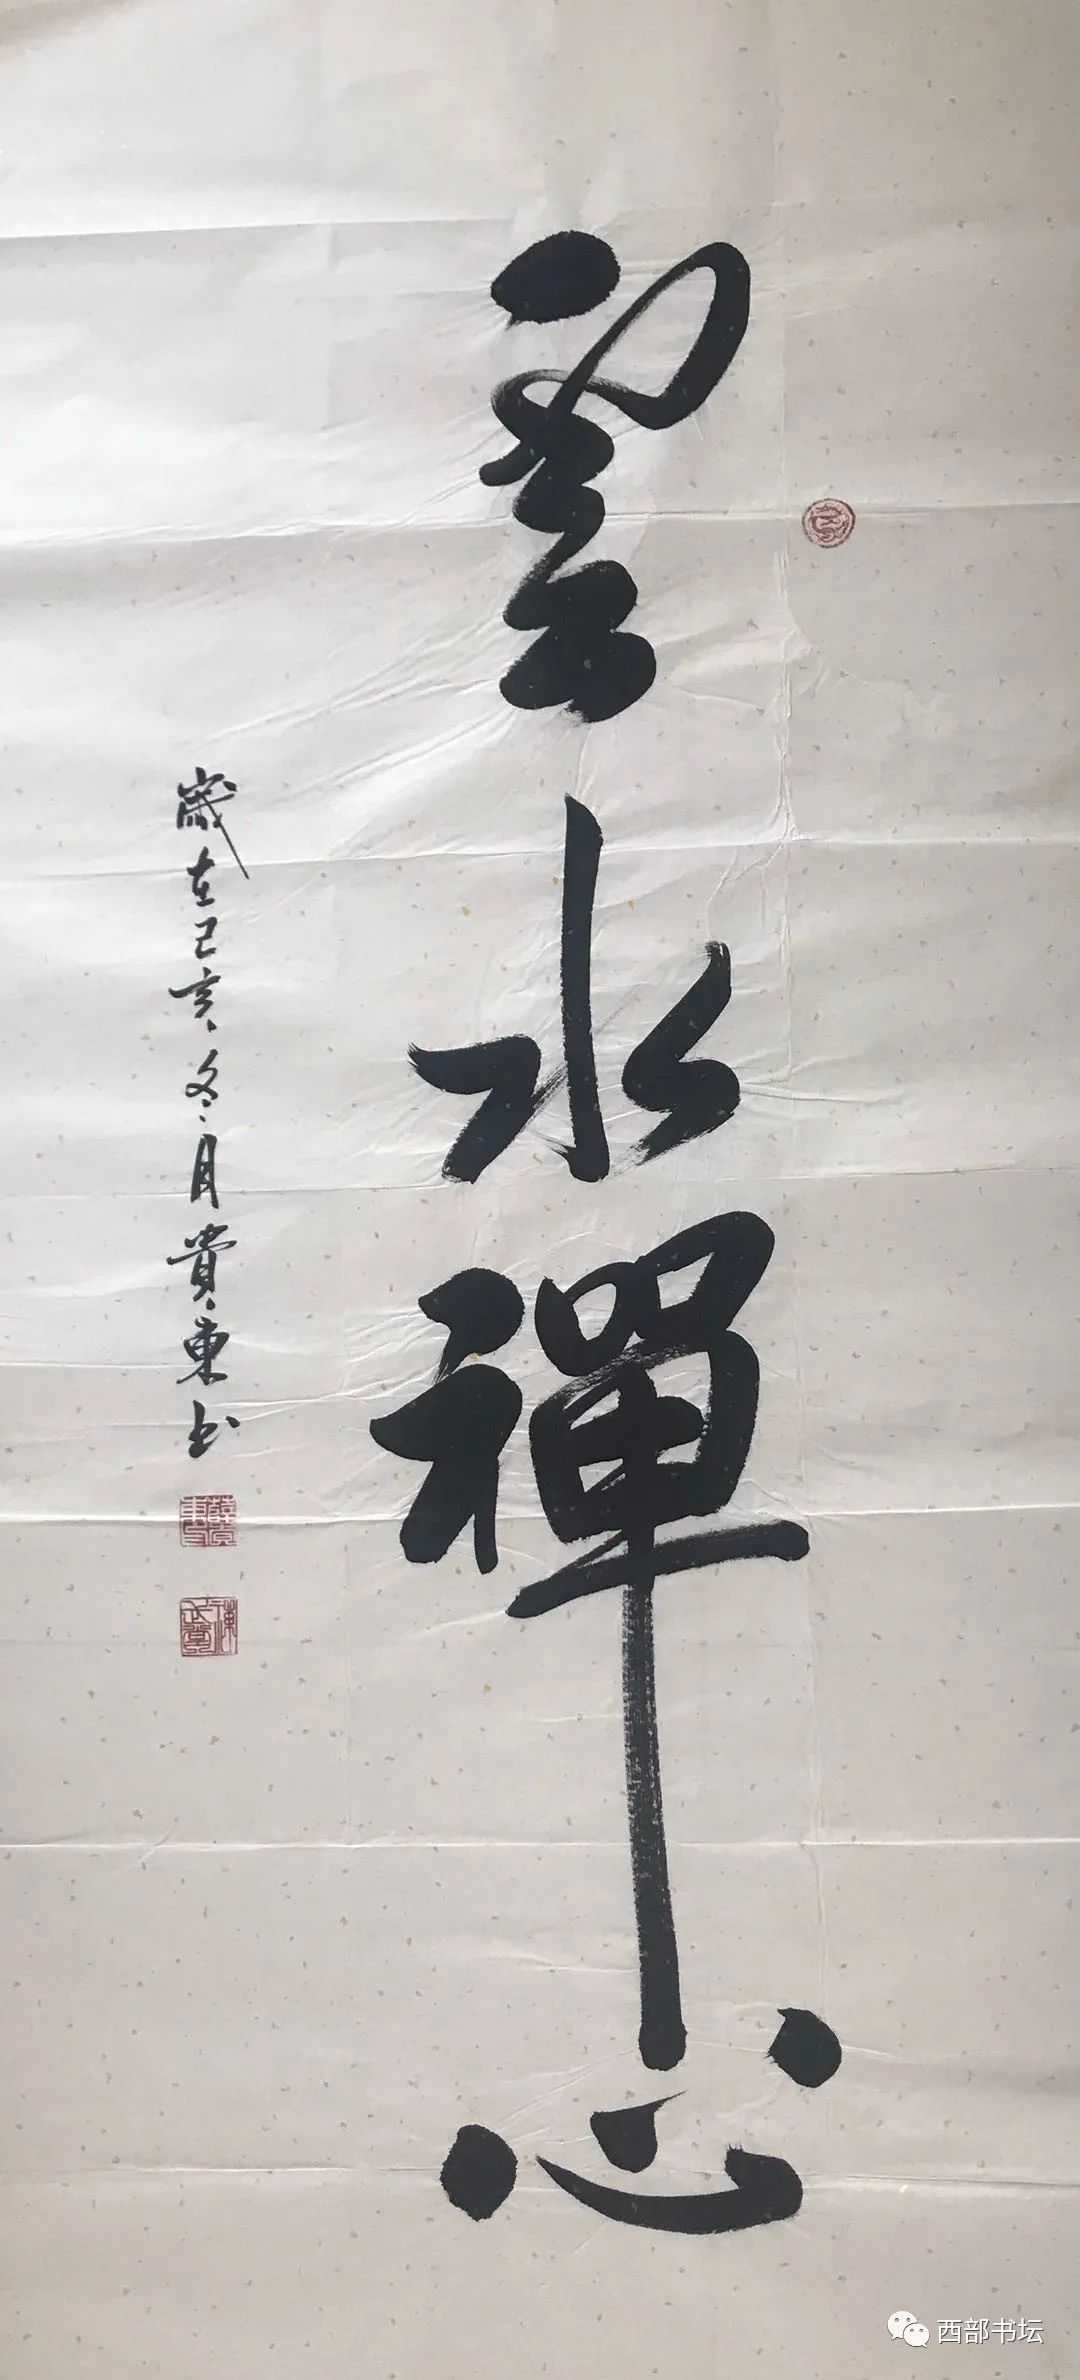 雲水禪心
歲在己亥冬月貴東书
西部书坛